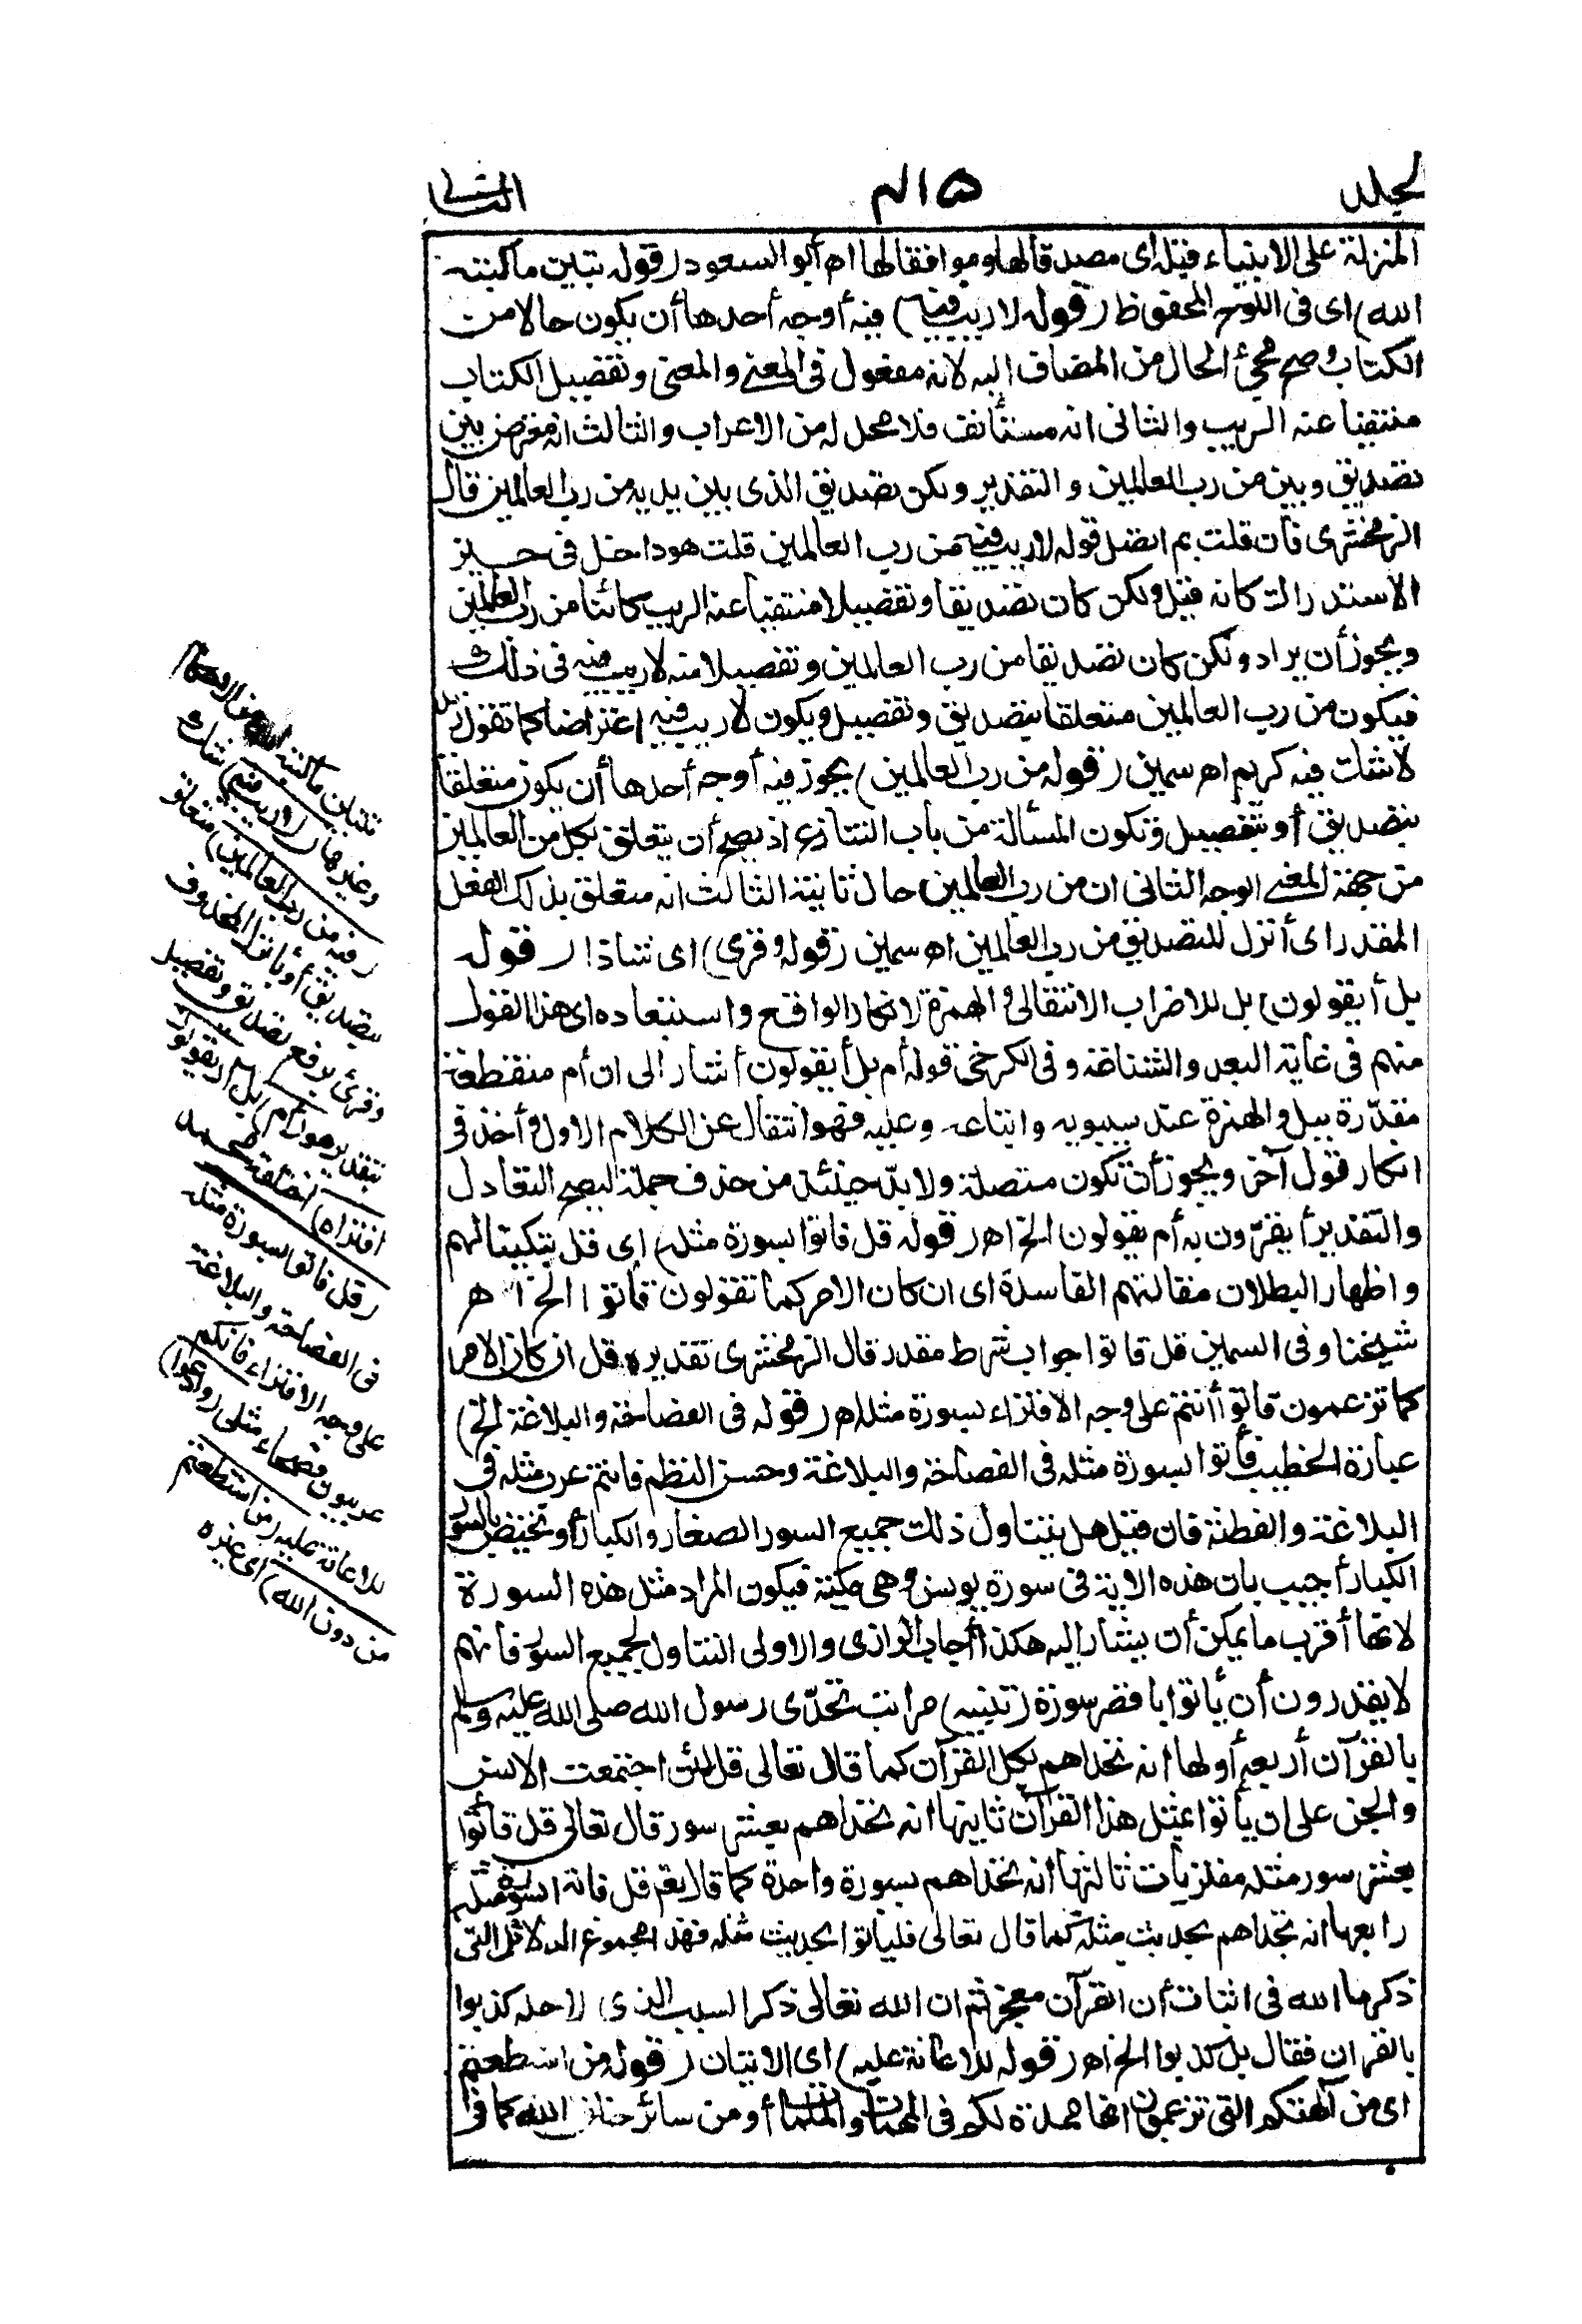 الجلد
الثاني
المنزلة على الانبياء قبله أى مصدقا لها وموافقا لها اه أبو السعود (قوله تبيين ما كتبه
الله) اى فى اللوح المحفوظ (قوله لا ريب فيه) فيه أوجه أحدها أن يكون حالا من
الكتاب وصح مجئ الحال من المضاف اليه لانه مفعول فى المعنى والمعنى وتفصيل الكتاب
منتفيا عنه الريب والثانى انه مستأنف فلا محل له من الاعراب والثالث انه معترض بين
تصديق وبين من رب العالمين والتقدير ولكن تصديق الذى بين يديه من رب العالمين قال
الزمخشرى فان قلت بم اتصل قوله لا ريب فيه من رب العالمين قلت هو داخل فى حيز
الاستدراك كانه قيل ولكن كان تصديقا وتفصيلا منتفيا عنه الريب كائنا من رب العالمين
ويجوز أن يراد ولكن كان تصديقا من رب العالمين وتفصيلا منه لا ريب فيه فى ذلك
فيكون من رب العالمين متعلقا بتصديق وتفصيل ويكون لا ريب فيه اعتراضا كما تقول زيد
لا شك فيه كريم اه سمين (قوله من رب العالمين) يجوز فيه أوجه أحدها أن يكون متعلقا
بتصديق أو بتفصيل وتكون المسألة من باب التنازع اذ يصح أن يتعلق بكل من العالمين
من جهة المعنى الوجه الثانى ان من رب العالمين حال ثانية الثالث انه متعلق بذلك الفعل
المقدر اى أنزل للتصديق من رب العالمين اه سمين (قوله وقرئ) اى شاذا (قوله
بل أيقولون) بل للاضراب الانتقالى والهمزة لانكار الواقع واستبعاده اى هذا القول
منهم فى غاية البعد والشناعة وفى الكرخى قوله أم بل أيقولون أشار الى ان أم منقطعة
مقدّرة ببل والهمزة عند سيبويه واتباعه وعليه فهو انتقال عن الكلام الاول وأخذ فى
انكار قول آخر ويجوز أن تكون متصلة ولا بد حينئذ من حذف جملة ليصح التعادل
والتقدير أيقرّون به أم يقولون الخ اه (قوله قل فاتوا بسورة مثله) اى قل تبكيتا لهم
واظهارا لبطلان مقالتهم الفاسدة اى ان كان الامر كما تقولون فأتوا الخ اه
شيخنا وفى السمين قل فاتوا جواب شرط مقدر قال الزمخشرى تقديره قل ان كان الامر
كما تزعمون فأتوا أنتم على وجه الافتراء بسورة مثله اه (قوله فى الفصاحة والبلاغة الخ)
عبارة الخطيب فأتوا بسورة مثله فى الفصاحة والبلاغة وحسن النظم فانتم عرب مثله فى
البلاغة والفطنة فان قيل هل يتناول ذلك جميع السور الصغار والكبار أو يختص بالسور
الكبار أجيب بان هذه الاية فى سورة يونس وهى مكية فيكون المراد مثل هذه السورة
لانها أقرب ما يمكن أن يشار اليه هكذا أجاب الرازى والاولى التناول لجميع السور فانهم
لا يقدرون أن يأتوا باقصر سورة (تنبيه) مراتب تحدّى رسول الله صلى الله عليه وسلم
بالقرآن أربعة أولها انه تحداهم بكل القرآن كما قال تعالى قل لئن اجتمعت الانس
والجن على ان يأتوا بمثل هذا القرآن ثانيها انه تحداهم بعشر سور قال تعالى قل فأتوا
بعشر سور مثله مفتريات ثالثها انه تحداهم بسورة واحدة كما قال تعم قل فاتوا بسورة مثله
رابعها انه تحداهم بحديث مثله كما قال تعالى فلياتوا بحديث مثله فهذا مجموع الدلائل التى
ذكرها الله فى اثبات أن القرآن معجز ثم ان الله تعالى ذكر السبب الذى لاجله كذبوا
بالقران فقال بل كذبوا الخ اه (قوله للاعانة عليه) اى الاتيان (قوله من استطعتم)
اى من آلهتكم التى تزعمون انها ممدة لكم فى المهمات والملمات أو من سائر خلق الله كما فى
تبيين ما كتبه الله من الاحكام
وغيرها (لا ريب) شك
(فيه من رب العالمين) متعلق
بتصديق أو بأنزل المحذوف
وقرئ برفع تصديق وتفصيل
بتقدير هو (أم) بل أ(يقولون
افتراه) اختلقه محمد
(قل فاتوا بسورة مثله)
فى الفصاحة والبلاغة
على وجه الافتراء فانكم
عربيون فصحاء مثلى (وادعوا)
للاعانة عليه (من استطعتم
من دون الله) اى غيره